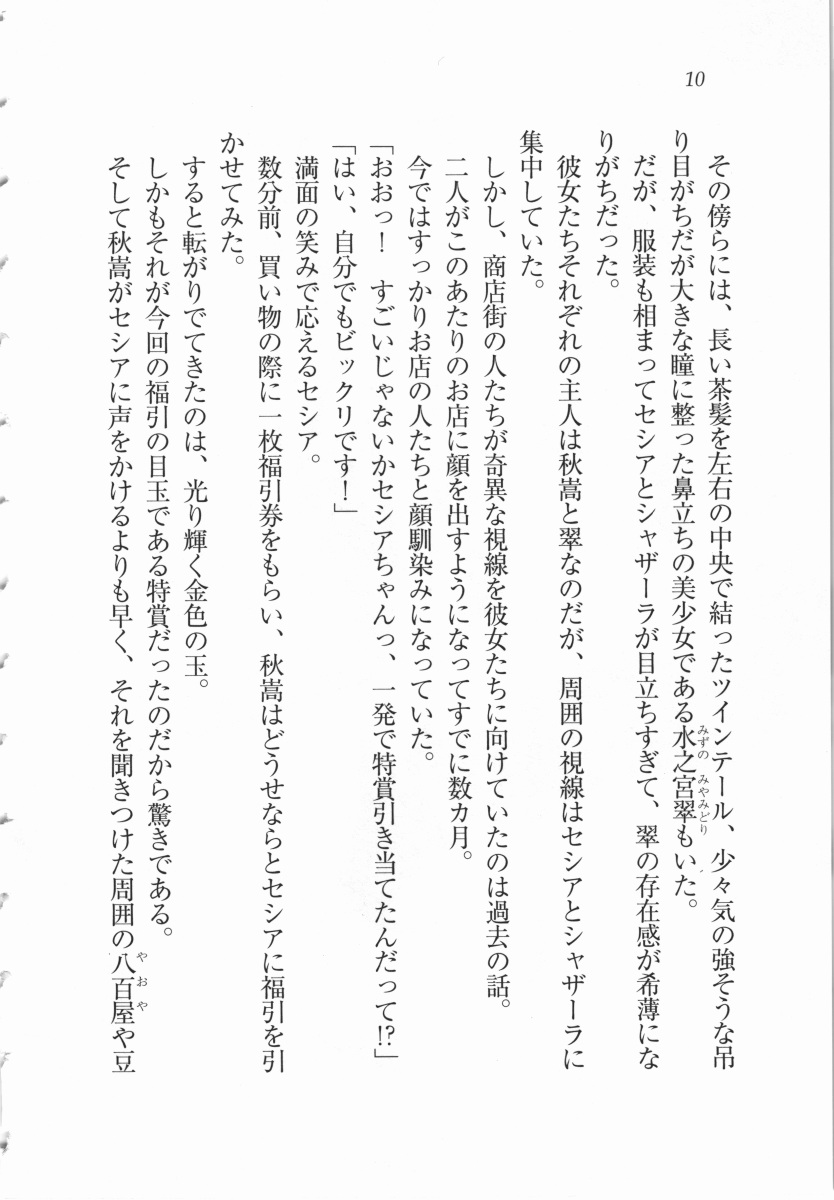 10
その傍らには、長い茶髪を左右の中央で結ったツインテール、少々気の強そうな吊
り目がちだが大きな瞳に整った鼻立ちの美少女である水之宮翠もいた。
みずの みやみどり
だが、服装も相まってセシアとシャザーラが目立ちすぎて、翠の存在感が希薄にな
りがちだった。
彼女たちそれぞれの主人は秋嵩と翠なのだが、周囲の視線はセシアとシャザーラに
集中していた。
しかし、商店街の人たちが奇異な視線を彼女たちに向けていたのは過去の話。
二人がこのあたりのお店に顔を出すようになってすでに数カ月。
今ではすっかりお店の人たちと顔馴染みになっていた。
「おおっ！　すごいじゃないかセシアちゃんっ、一発で特賞引き当てたんだって!?」
「はい、自分でもビックリです！」
満面の笑みで応えるセシア。
数分前、買い物の際に一枚福引券をもらい、秋嵩はどうせならとセシアに福引を引
かせてみた。
すると転がりでてきたのは、光り輝く金色の玉。
しかもそれが今回の福引の目玉である特賞だったのだから驚きである。
そして秋嵩がセシアに声をかけるよりも早く、それを聞きつけた周囲の八百屋や豆
やおや